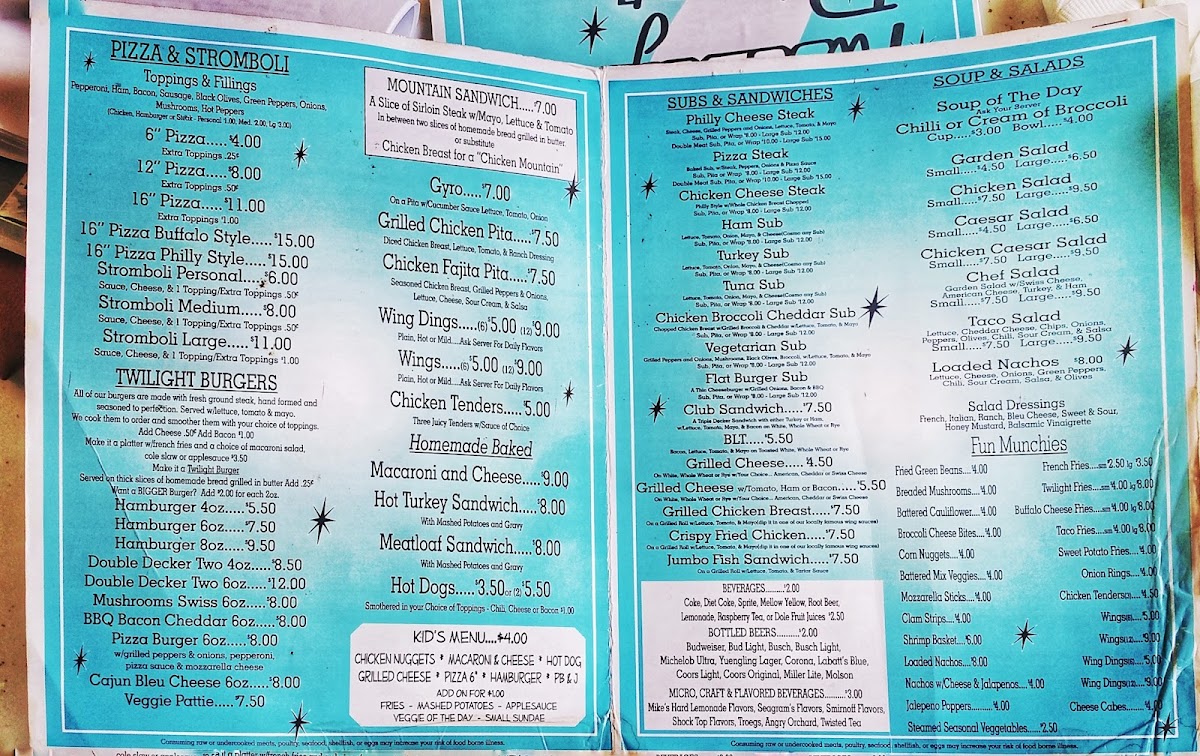 PIZZA & STROMBOLI
Toppings & Fillings
Pepperoni, Ham, Bacon, Sausage, Black Olives, Green Peppers, Onions,
Mushrooms, Hot Peppers
(Chicken, Hamburger or Steak - Personal $1.00, Med. $2.00, Lg $3.00)
6" Pizza.....$4.00
Extra Toppings .25¢
12" Pizza.....$8.00
Extra Toppings .50¢
16" Pizza.....$11.00
Extra Toppings $1.00
16" Pizza Buffalo Style.....$15.00
16" Pizza Philly Style.....$15.00
Stromboli Personal.....$6.00
Sauce, Cheese, & 1 Topping/Extra Toppings .50¢
Stromboli Medium.....$8.00
Sauce, Cheese, & 1 Topping/Extra Toppings .50¢
Stromboli Large.....$11.00
Sauce, Cheese, & 1 Topping/Extra Toppings $1.00
TWILIGHT BURGERS
All of our burgers are made with fresh ground steak, hand formed and
seasoned to perfection. Served w/lettuce, tomato & mayo.
We cook them to order and smother them with your choice of toppings.
Add Cheese .50¢ Add Bacon $1.00
Make it a platter w/french fries and a choice of macaroni salad,
cole slaw or applesauce $3.50
Make it a Twilight Burger
Served on thick slices of homemade bread grilled in butter Add .25¢
Want a BIGGER Burger? Add $2.00 for each 2oz.
Hamburger 4oz.....$5.50
Hamburger 6oz.....$7.50
Hamburger 8oz.....$9.50
Double Decker Two 4oz.....$8.50
Double Decker Two 6oz.....$12.00
Mushrooms Swiss 6oz.....$8.00
BBQ Bacon Cheddar 6oz.....$8.00
Pizza Burger 6oz.....$8.00
w/grilled peppers & onions, pepperoni,
pizza sauce & mozzarella cheese
Cajun Bleu Cheese 6oz.....$8.00
Veggie Pattie.....$7.50
MOUNTAIN SANDWICH.....$7.00
A Slice of Sirloin Steak w/Mayo, Lettuce & Tomato
In between two slices of homemade bread grilled in butter
or substitute
Chicken Breast for a "Chicken Mountain"
Gyro.....$7.00
On a Pita w/Cucumber Sauce Lettuce, Tomato, Onion
Grilled Chicken Pita.....$7.50
Diced Chicken Breast, Lettuce, Tomato, & Ranch Dressing
Chicken Fajita Pita.....$7.50
Seasoned Chicken Breast, Grilled Peppers & Onions,
Lettuce, Cheese, Sour Cream, & Salsa
Wing Dings.....(6)$5.00 (12)$9.00
Plain, Hot or Mild.....Ask Server For Daily Flavors
Wings.....(6)$5.00 (12)$9.00
Plain, Hot or Mild.....Ask Server For Daily Flavors
Chicken Tenders.....$5.00
Three Juicy Tenders w/Sauce of Choice
Homemade Baked
Macaroni and Cheese.....$9.00
Hot Turkey Sandwich.....$8.00
With Mashed Potatoes and Gravy
Meatloaf Sandwich.....$8.00
With Mashed Potatoes and Gravy
Hot Dogs.....$3.50 or (2)$5.50
Smothered in your Choice of Toppings - Chili, Cheese or Bacon $1.00
KID'S MENU....$4.00
CHICKEN NUGGETS * MACARONI & CHEESE * HOT DOG
GRILLED CHEESE * PIZZA 6" * HAMBURGER * PB & J
ADD ON FOR $1.00
FRIES - MASHED POTATOES - APPLESAUCE
VEGGIE OF THE DAY - SMALL SUNDAE
Consuming raw or undercooked meats, poultry, seafood, shellfish, or eggs may increase your risk of food borne illness.
SUBS & SANDWICHES
Philly Cheese Steak
Steak, Cheese, Grilled Peppers and Onions, Lettuce, Tomato, & Mayo
Sub, Pita, or Wrap $8.00 - Large Sub $12.00
Double Meat Sub, Pita, or Wrap $10.00 - Large Sub $15.00
Pizza Steak
Baked Sub, w/Steak, Peppers, Onions & Pizza Sauce
Sub, Pita or Wrap $8.00 - Large Sub $12.00
Double Meat Sub, Pita, or Wrap $10.00 - Large Sub $15.00
Chicken Cheese Steak
Philly Style w/Whole Chicken Breast Chopped
Sub, Pita, or Wrap $8.00 - Large Sub $12.00
Ham Sub
Lettuce, Tomato, Onion, Mayo, & Cheese(Cosmo any Sub)
Sub, Pita, or Wrap $8.00 - Large Sub $12.00
Turkey Sub
Lettuce, Tomato, Onion, Mayo, & Cheese(Cosmo any Sub)
Sub, Pita, or Wrap $8.00 - Large Sub $12.00
Tuna Sub
Lettuce, Tomato, Onion, Mayo, & Cheese(Cosmo any Sub)
Sub, Pita, or Wrap $8.00 - Large Sub $12.00
Chicken Broccoli Cheddar Sub
Chopped Chicken Breast w/Grilled Broccoli & Cheddar w/Lettuce, Tomato, & Mayo
Sub, Pita, or Wrap $8.00 - Large Sub $12.00
Vegetarian Sub
Grilled Peppers and Onions, Mushrooms, Black Olives, Broccoli, w/Lettuce, Tomato, & Mayo
Sub, Pita, or Wrap $8.00 - Large Sub $12.00
Flat Burger Sub
A Thin Cheeseburger w/Grilled Onions, Bacon & BBQ
Sub, Pita, or Wrap $8.00 - Large Sub $12.00
Club Sandwich.....$7.50
A Triple Decker Sandwich with either Turkey or Ham,
w/Lettuce, Tomato, Mayo, & Bacon on White, Whole Wheat or Rye
BLT.....$5.50
Bacon, Lettuce, Tomato, & Mayo on Toasted White, Whole Wheat or Rye
Grilled Cheese..... $4.50
On White, Whole Wheat or Rye w/Your Choice... American, Cheddar or Swiss Cheese
Grilled Cheese w/Tomato, Ham or Bacon.....$5.50
On White, Whole Wheat or Rye w/Your Choice... American, Cheddar or Swiss Cheese
Grilled Chicken Breast.....$7.50
On a Grilled Roll w/Lettuce, Tomato, & Mayo(dip it in one of our locally famous wing sauces)
Crispy Fried Chicken.....$7.50
On a Grilled Roll w/Lettuce, Tomato, & Mayo(dip it in one of our locally famous wing sauces)
Jumbo Fish Sandwich.....$7.50
On a Grilled Roll w/Lettuce, Tomato, & Tartar Sauce
BEVERAGES.........$2.00
Coke, Diet Coke, Sprite, Mellow Yellow, Root Beer,
Lemonade, Raspberry Tea, or Dole Fruit Juices $2.50
BOTTLED BEERS...........$2.00
Budweiser, Bud Light, Busch, Busch Light,
Michelob Ultra, Yuengling Lager, Corona, Labatt's Blue,
Coors Light, Coors Original, Miller Lite, Molson
MICRO, CRAFT & FLAVORED BEVERAGES.........$3.00
Mike's Hard Lemonade Flavors, Seagram's Flavors, Smirnoff Flavors,
Shock Top Flavors, Troegs, Angry Orchard, Twisted Tea
SOUP & SALADS
Soup of The Day
Ask Your Server
Chilli or Cream of Broccoli
Cup.....$3.00 Bowl.....$4.00
Garden Salad
Small.....$4.50 Large....$6.50
Chicken Salad
Small.....$7.50 Large....$9.50
Caesar Salad
Small.....$4.50 Large....$6.50
Chicken Caesar Salad
Small.....$7.50 Large....$9.50
Chef Salad
Garden Salad w/Swiss Cheese,
American Cheese, Turkey, & Ham
Small.....$7.50 Large....$9.50
Taco Salad
Lettuce, Cheddar Cheese, Chips, Onions,
Peppers, Olives, Chili, Sour Cream, & Salsa
Small.....$7.50 Large....$9.50
Loaded Nachos $8.00
Lettuce, Cheese, Onions, Green Peppers,
Chili, Sour Cream, Salsa, & Olives
Salad Dressings
French, Italian, Ranch, Bleu Cheese, Sweet & Sour,
Honey Mustard, Balsamic Vinaigrette
Fun Munchies
Fried Green Beans....$4.00
Breaded Mushrooms....$4.00
Battered Cauliflower....$4.00
Broccoli Cheese Bites....$4.00
Corn Nuggets....$4.00
Battered Mix Veggies....$4.00
Mozzarella Sticks....$4.00
Clam Strips....$4.00
Shrimp Basket....$6.00
Loaded Nachos....$8.00
Nachos w/Cheese & Jalapenos....$4.00
Jalepeno Poppers..........$4.00
Steamed Seasonal Veggetables....$2.50
French Fries....sm $2.50 lg $3.50
Twilight Fries....sm $4.00 lg $8.00
Buffalo Cheese Fries....sm $4.00 lg $8.00
Taco Fries....sm $4.00 lg $8.00
Sweet Potato Fries....$4.00
Onion Rings....$4.00
Chicken Tenders(3)....$4.50
Wings(6)....$5.00
Wings(12)....$9.00
Wing Dings(6)....$5.00
Wing Dings(12)....$9.00
Cheese Cubes.....$4.00
Consuming raw or undercooked meats, poultry, seafood, shellfish, or eggs may increase your risk of food borne illness.